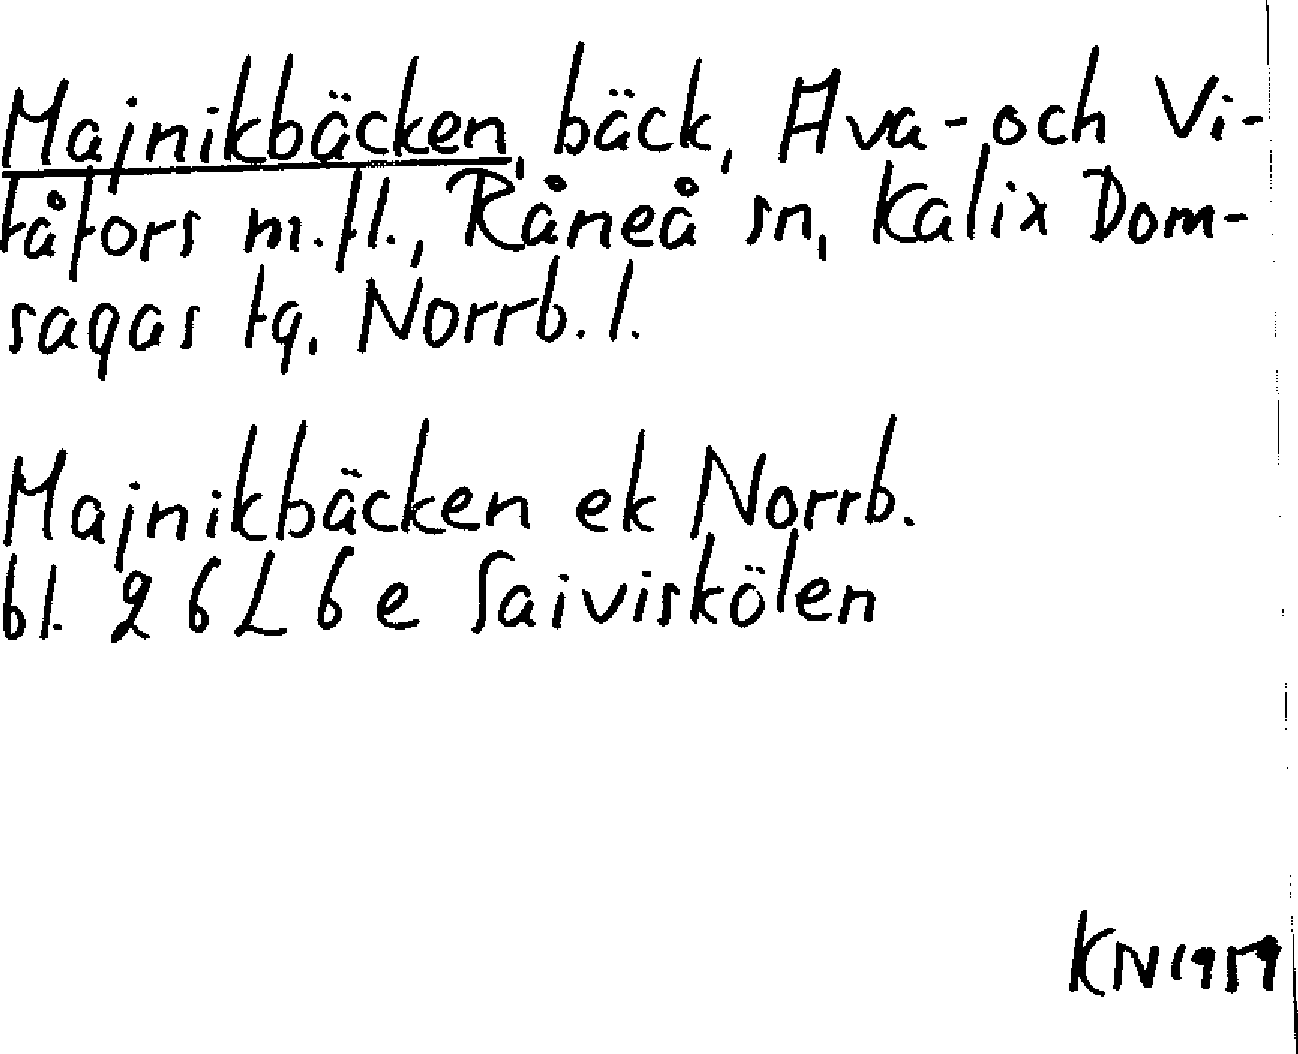 Majnikbäcken, bäck, Ava- och Vi-
tåfors m.fl., Råneå sn, Kalix Dom-
sagas tg, Norrb. l.
Majnikbäcken ek Norrb.
bl. 26L6e Saiviskölen
KN1959